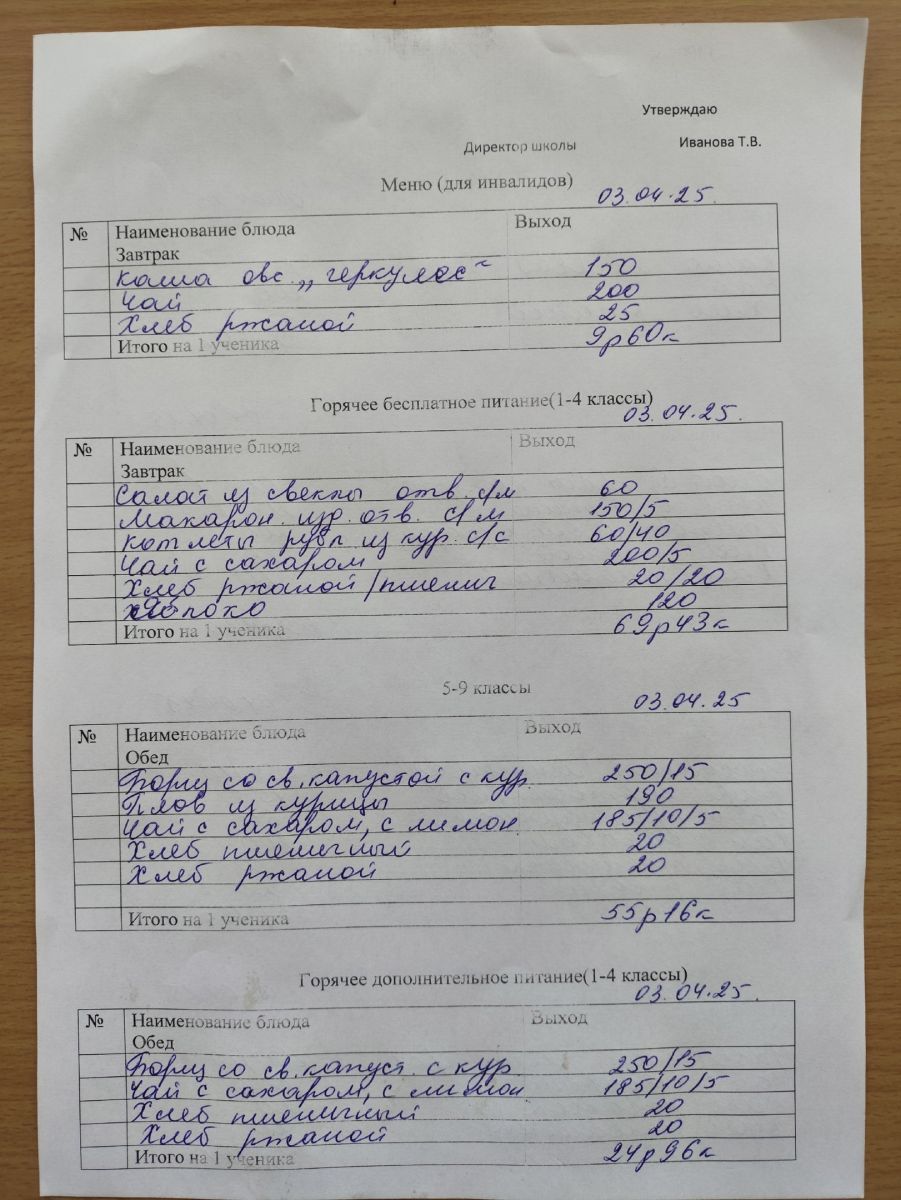 Утверждаю
Директор школы Иванова Т.В.
Меню (для инвалидов)
03.04.25.
№ Наименование блюда Выход
Завтрак
Каша овс. „геркулес“ 150
Чай 200
Хлеб ржаной 25
Итого на 1 ученика 9р60к
Горячее бесплатное питание(1-4 классы)
03.04.25.
№ Наименование блюда Выход
Завтрак
Салат из свеклы отв. с/м 60
Макарон. изд. отв. с/м 150/5
Котлеты рубл из кур. с/с 60/40
Чай с сахаром 200/5
Хлеб ржаной/пшенич 20/20
яблоко 120
Итого на 1 ученика 69р43к
5-9 классы
03.04.25
№ Наименование блюда Выход
Обед
Борщ со св. капустой с кур. 250/15
Плов из курицы 190
Чай с сахаром, с лимон 185/10/5
Хлеб пшеничный 20
Хлеб ржаной 20
Итого на 1 ученика 55р16к
Горячее дополнительное питание(1-4 классы)
03.04.25.
№ Наименование блюда Выход
Обед
Борщ со св. капуст. с кур 250/15
Чай с сахаром, с лимон 185/10/5
Хлеб пшеничный 20
Хлеб ржаной 20
Итого на 1 ученика 24р96к